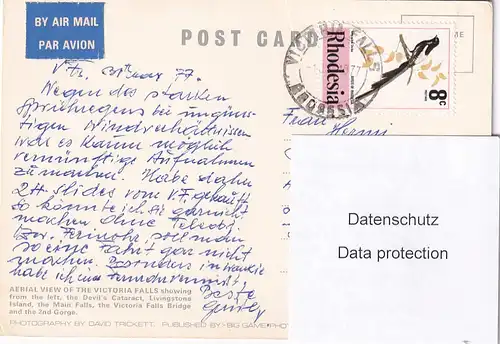 BY AIR MAIL
PAR AVION
POST CARD
VICTORIA FALLS
RHODESIA
Rhodesia
8c
ME
V.F. 77.
Wegen des starken
Sprühregens bei ungüns-
tigen Windverhältnissen
war es kaum möglich
vernünftige Aufnahmen
zu machen. Habe dann
24 Slides vom V.F. gekauft
so könnte ich sie garnicht
machen ohne Teleobj.
soll man
so eine Fahrt gar nicht
machen. Besonders in
habe ich ein
Beste
Frau
Herrn
Datenschutz
Data protection
AERIAL VIEW OF THE VICTORIA FALLS showing
from the left, the Devil's Cataract, Livingstone
Island, the Main Falls, the Victoria Falls Bridge
and the 2nd Gorge.
PHOTOGRAPHY BY DAVID TRICKETT. PUBLISHED BY- BIG GAME PHOT